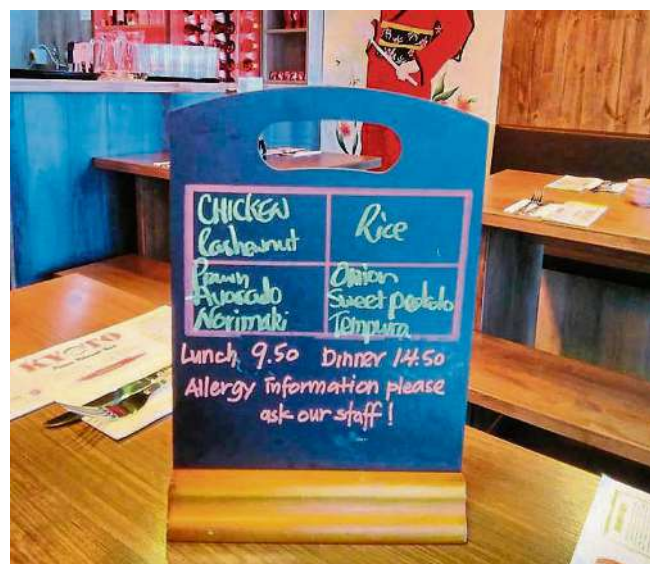 CHICKEN
Cashewnut
Rice
Prawn
Avocado
Norimaki
Onion
Sweet potato
Tempura
Lunch 9.50 Dinner 14.50
Allergy information please
ask our staff!
KYOTO